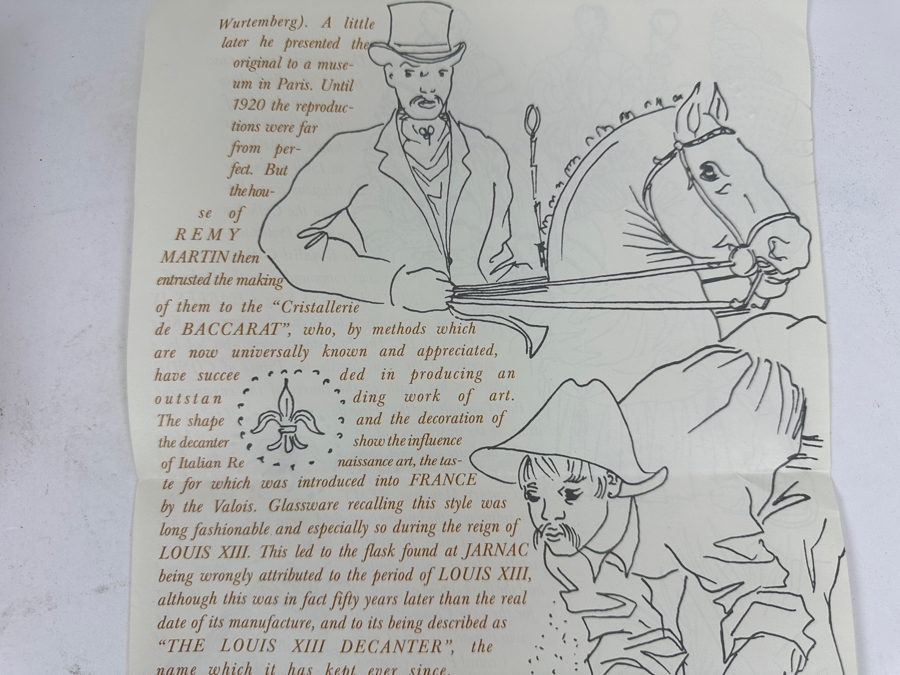 Wurtemberg). A little
later he presented the
original to a muse-
um in Paris. Until
1920 the reproduc-
tions were far
from per-
fect. But
the hou-
se of
REMY
MARTIN then
entrusted the making
of them to the "Cristallerie
de BACCARAT", who, by methods which
are now universally known and appreciated,
have succee ded in producing an
outstan ding work of art.
The shape and the decoration of
the decanter show the influence
of Italian Re naissance art, the tas-
te for which was introduced into FRANCE
by the Valois. Glassware recalling this style was
long fashionable and especially so during the reign of
LOUIS XIII. This led to the flask found at JARNAC
being wrongly attributed to the period of LOUIS XIII,
although this was in fact fifty years later than the real
date of its manufacture, and to its being described as
"THE LOUIS XIII DECANTER", the
name which it has kept ever since.